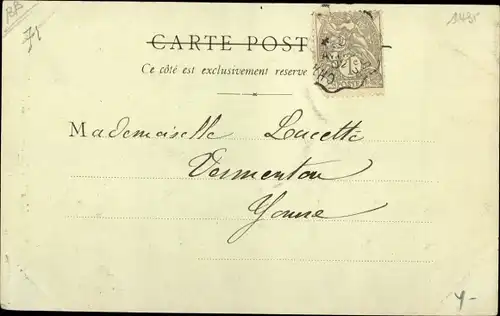 BB
71
1435
CARTE POST
Ce côté est exclusivement réservé
1c
Mademoiselle Lucette
Vermenton
Yonne
4-